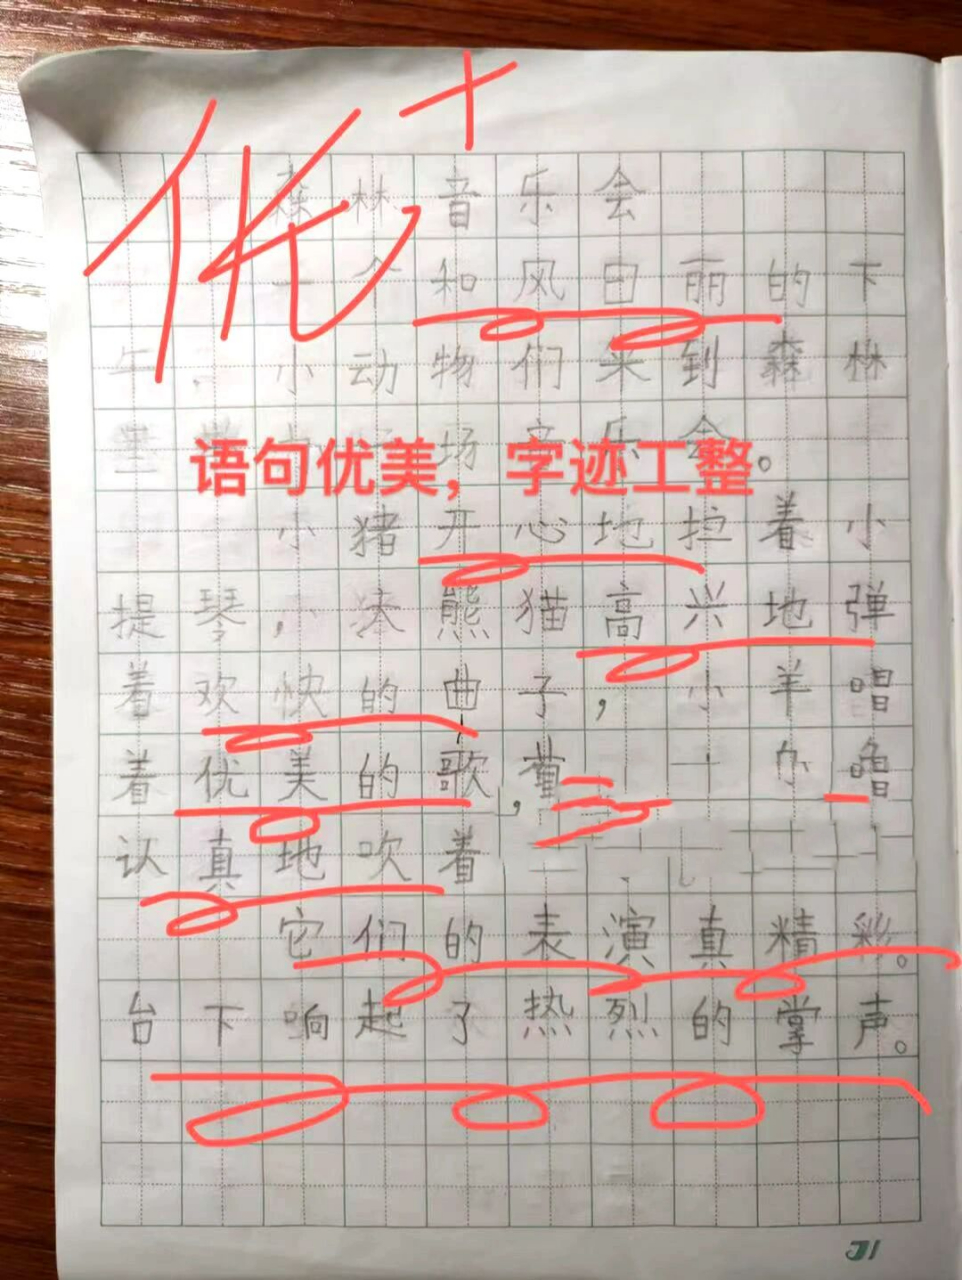 优+
森林音乐会
一个和风日丽的下
午，小动物们来到森林
场音乐会。
语句优美，字迹工整
小猪开心地拉着小
提琴，小 熊猫高兴地弹
着欢快的曲子，小羊唱
着优美的歌，
认真地吹着
它们的表演真精彩。
台下响起了热烈的掌声。